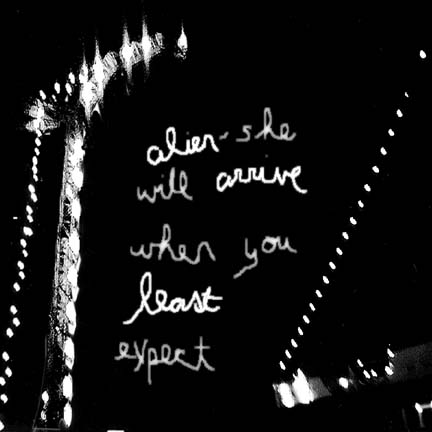 alien-she
will arrive
when you
least
expect